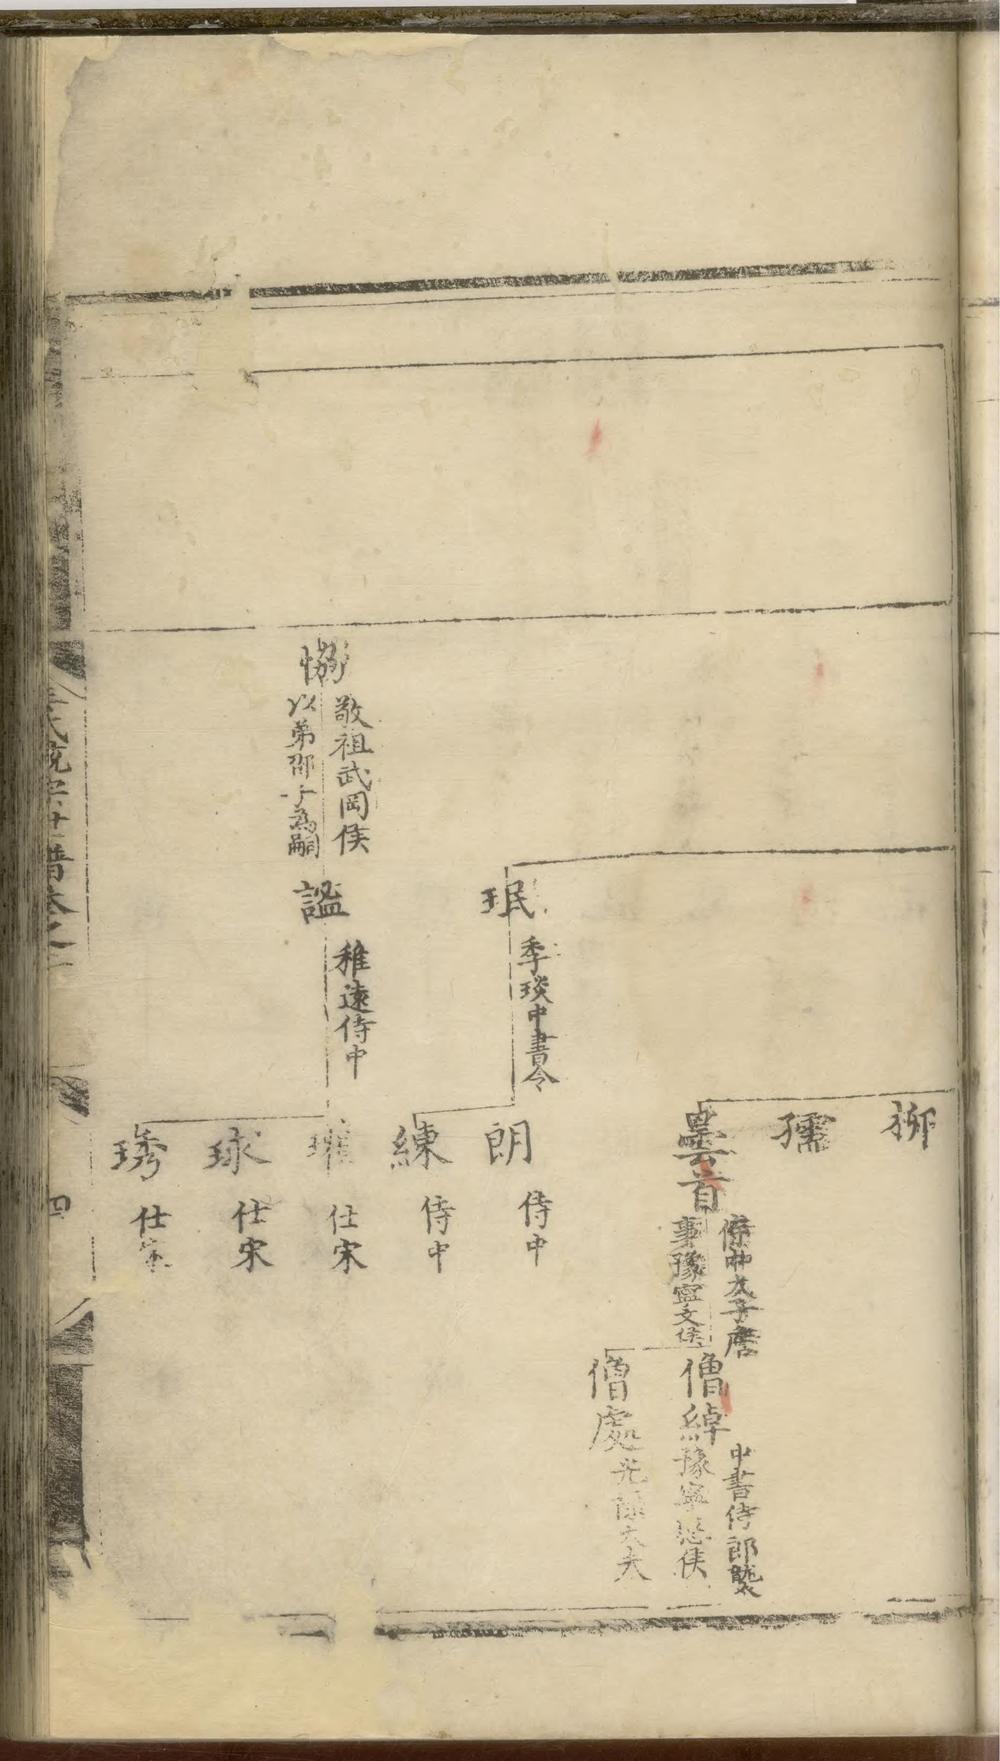 柳
孺
曇首
侍中太子詹
事豫寧文侯
僧綽
中書侍郎襲
豫寧愍侯
僧處
光祿大夫
珉
季琰中書令
朗
侍中
練
侍中
協
敬祖武岡侯
以弟邵子為嗣
謐
稚遠侍中
瓘
仕宋
球
仕宋
琇
仕宋
氏統宗世譜卷之二
四